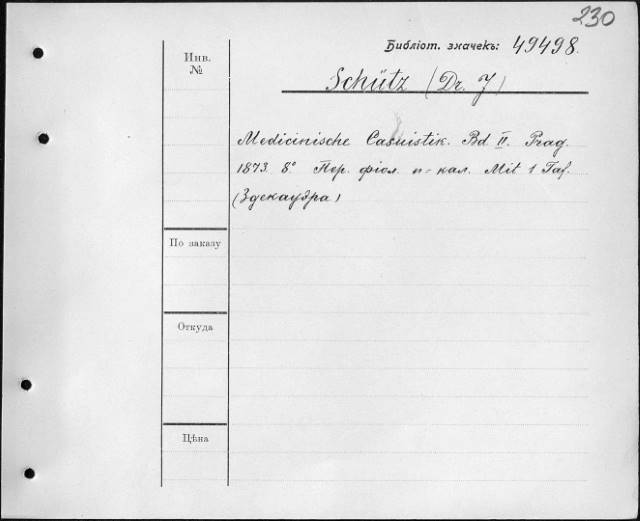 230
Библіот. значекъ: 49498.
Инв.
№
Schütz (Dr. J)
Medicinische Casuistik. Bd II. Prag.
1873. 8° Пер. фіол. п-кал. Mit 1 Taf.
(Здекауэра)
По заказу
Откуда
Цѣна